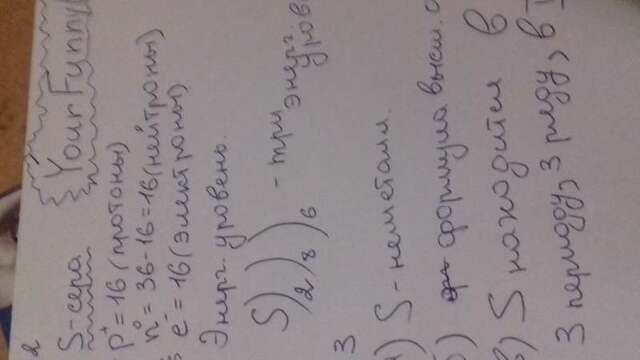 2
S-сера
YourFunny
p⁺ = 16 (протоны)
n⁰ = 36-16=16(нейтроны)
e⁻ = 16 (электроны)
Энерг. уровень.
S)₂)₈)₆ - три энерг. уров
3
) S - неметалл.
б) формула высш. о
в) S находится в
3 периоду, 3 ряду, в